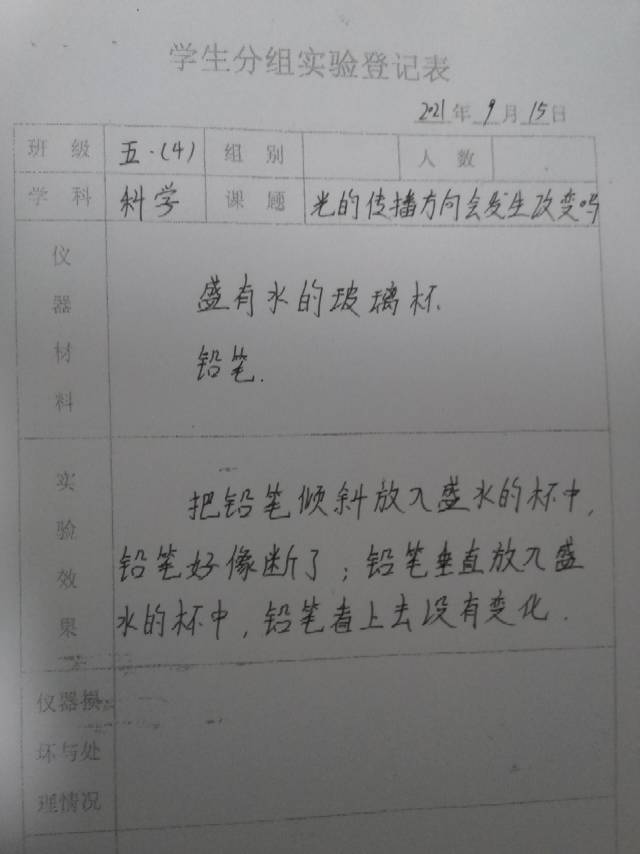 学生分组实验登记表
2021年9月15日
班级 五.(4) 组别 人数
学科 科学 课题 光的传播方向会发生改变吗
仪器材料
盛有水的玻璃杯.
铅笔.
实验效果
把铅笔倾斜放入盛水的杯中,
铅笔好像断了;铅笔垂直放入盛
水的杯中,铅笔看上去没有变化.
仪器损
坏与处
理情况